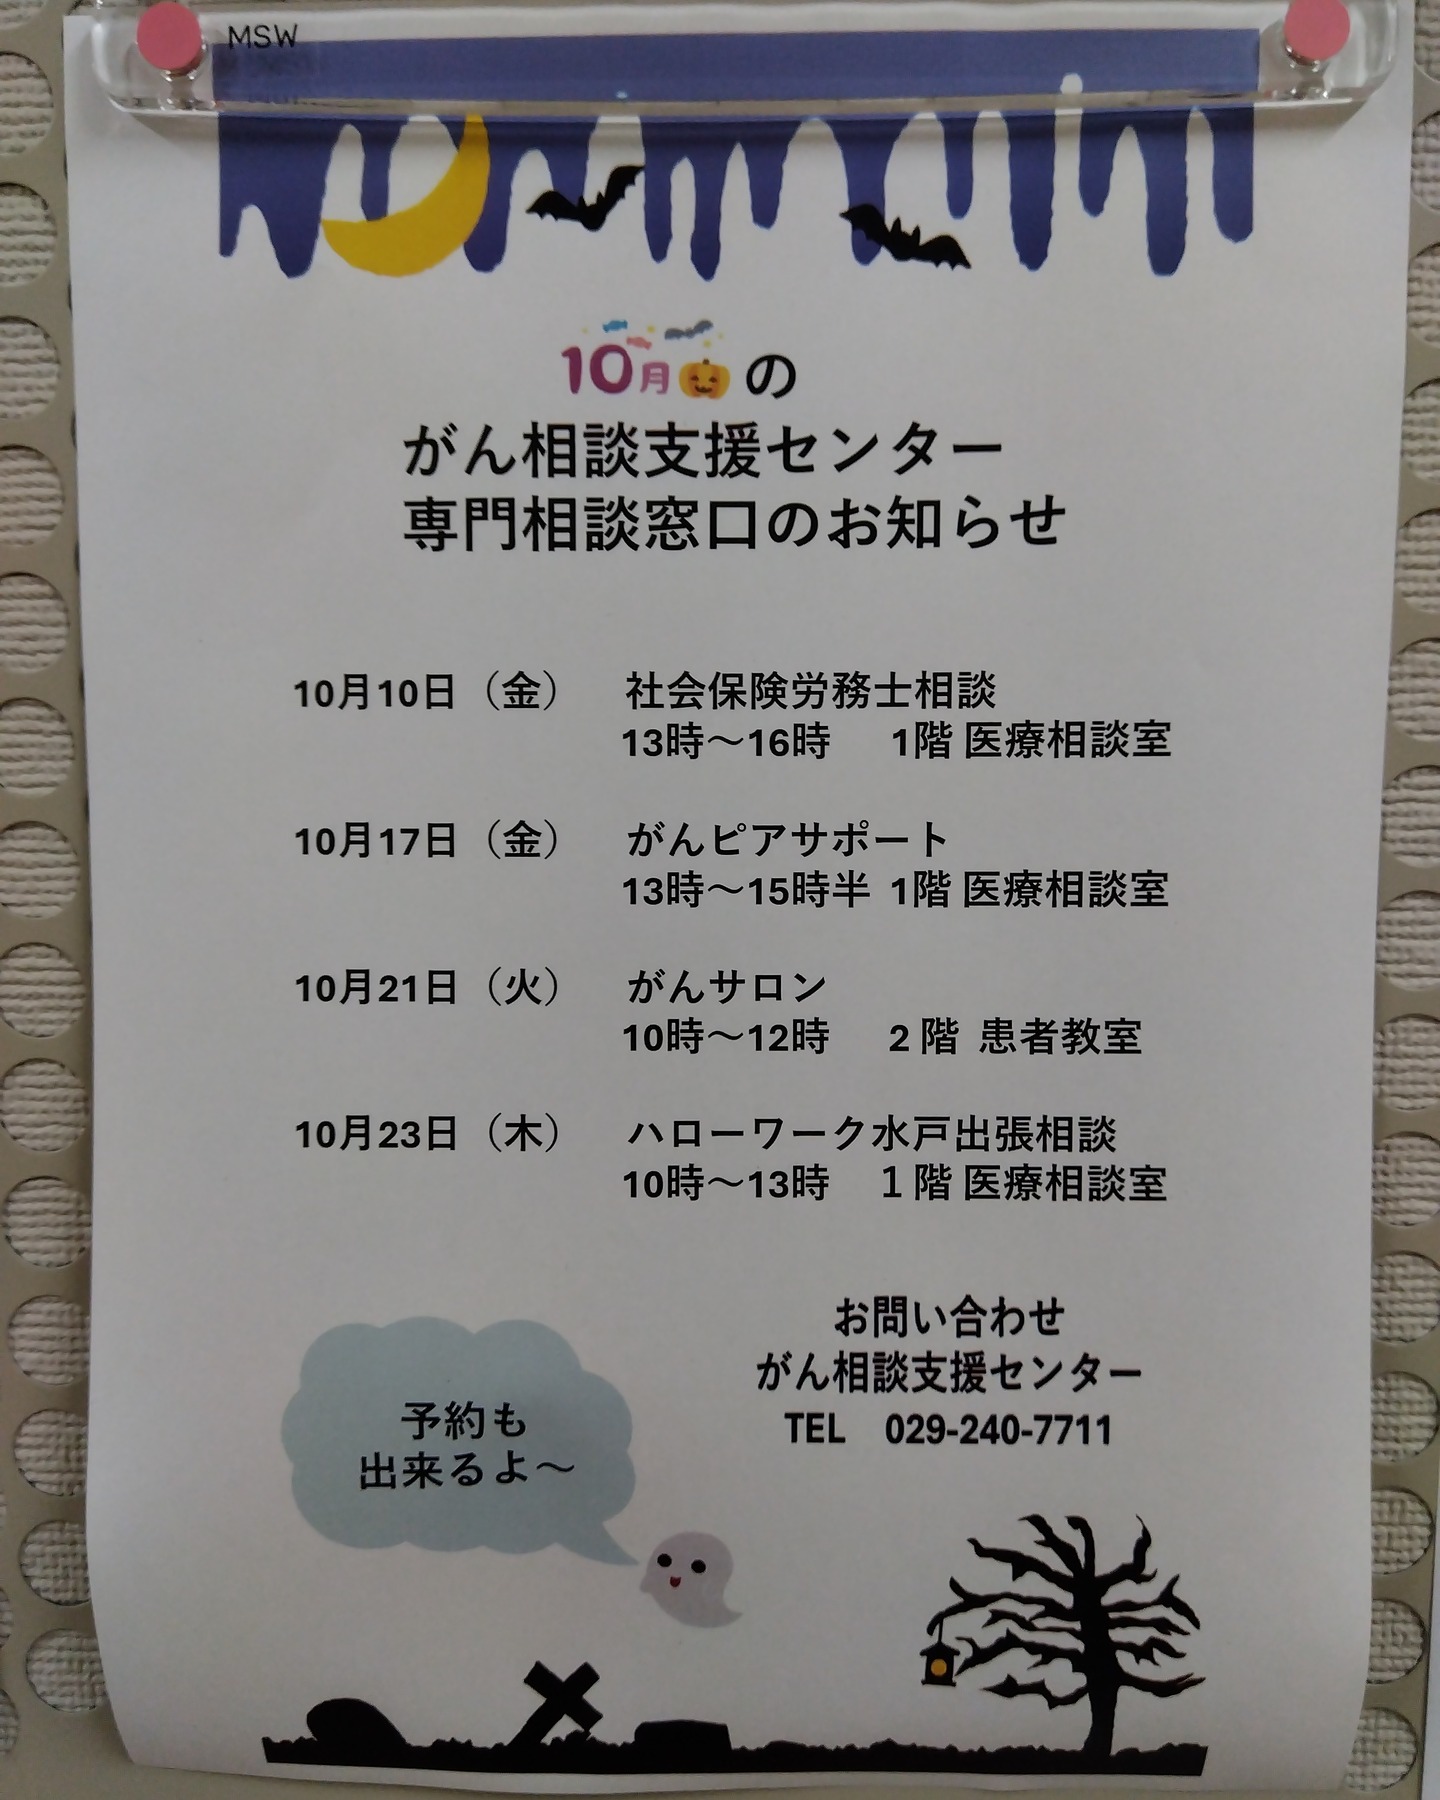 MSW
10月の
がん相談支援センター
専門相談窓口のお知らせ
10月10日（金） 社会保険労務士相談
13時～16時 1階 医療相談室
10月17日（金） がんピアサポート
13時～15時半 1階 医療相談室
10月21日（火） がんサロン
10時～12時 2階 患者教室
10月23日（木） ハローワーク水戸出張相談
10時～13時 1階 医療相談室
お問い合わせ
がん相談支援センター
TEL 029-240-7711
予約も
出来るよ～